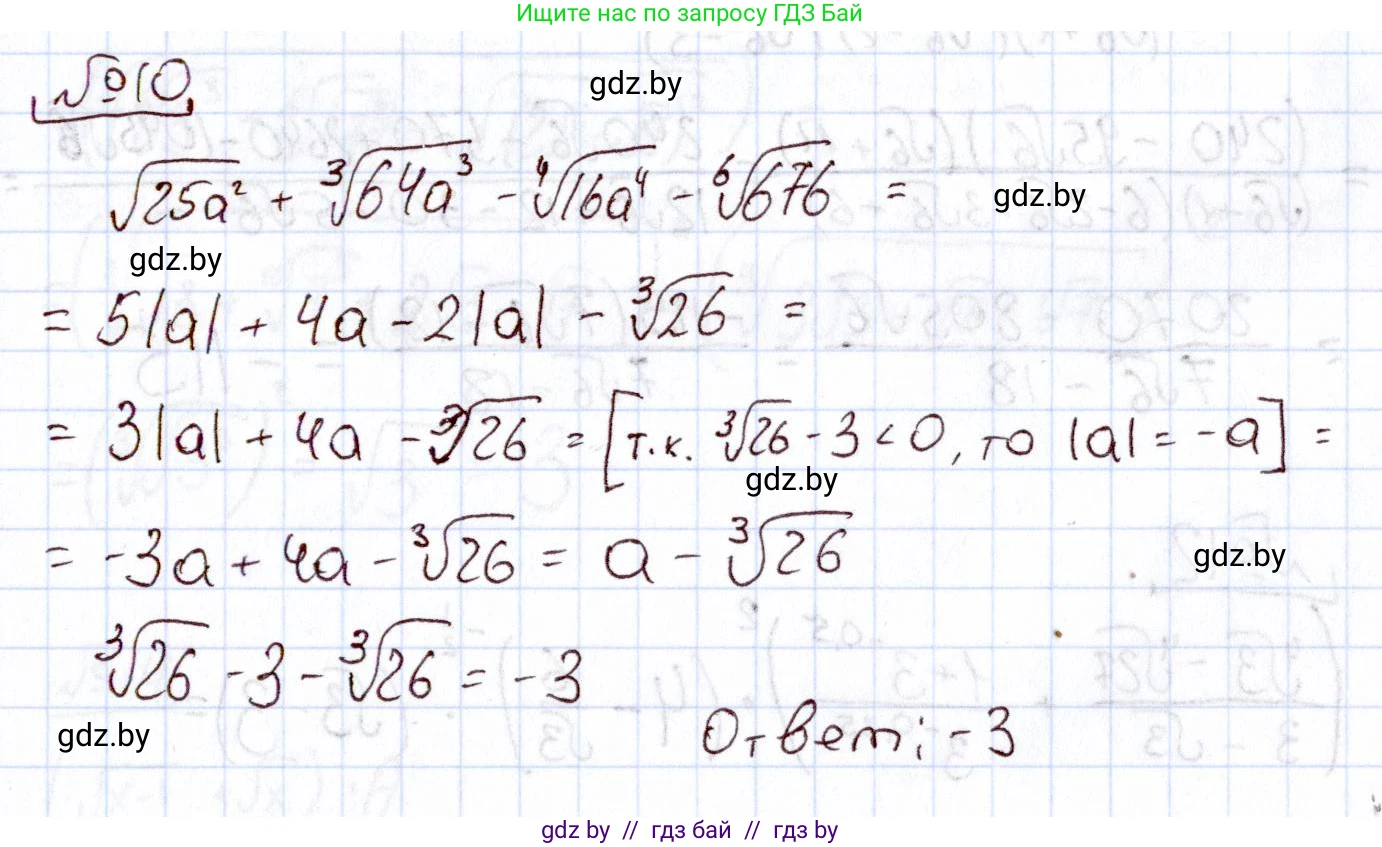 Ищите нас по запросу ГДЗ Бай
№10
gdz.by
√25a² + ∛64a³ - ∜16a⁴ - ⁶√676 =
gdz.by
gdz.by
= 5|a| + 4a - 2|a| - ∛26 =
= 3|a| + 4a - ∛26 = [т.к. ∛26 - 3 < 0, то |a| = -a] =
gdz.by
= -3a + 4a - ∛26 = a - ∛26
gdz.by
∛26 - 3 - ∛26 = -3
gdz.by
Ответ: -3
gdz by // гдз бай // гдз by